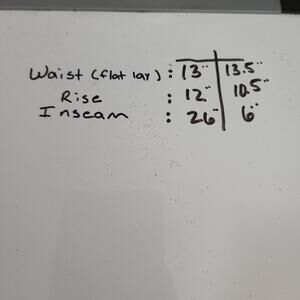 Waist (flat lay) : 13" | 13.5"
Rise : 12" | 10.5"
Inseam : 26" | 6"